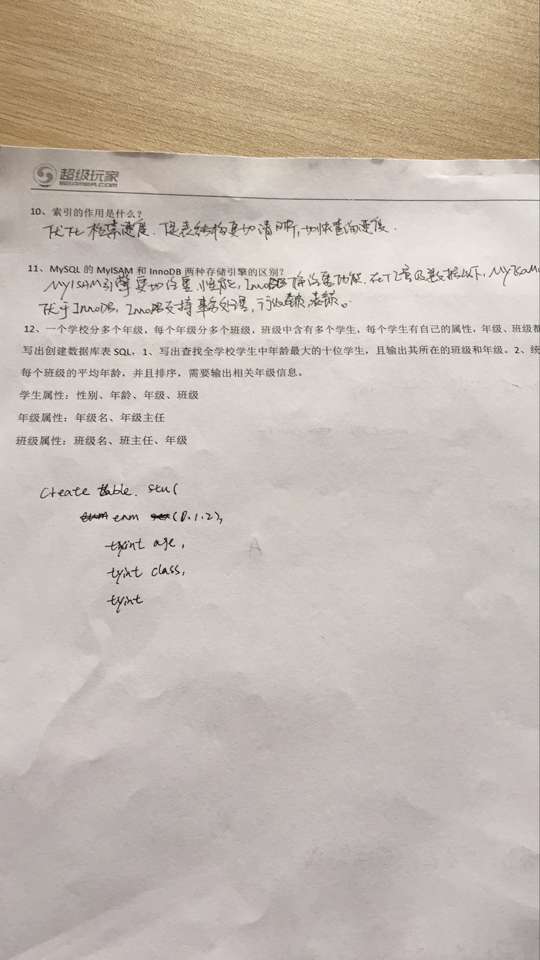 超级玩家
10、索引的作用是什么？
优化检索速度。使表结构更加清晰，加快查询速度。
11、MySQL 的 MyISAM 和 InnoDB 两种存储引擎的区别？
MyISAM引擎更加注重性能，InnoDB 注重功能，在 数据以下，MyISAM
优于InnoDB，InnoDB支持事务处理，行
12、一个学校分多个年级，每个年级分多个班级，班级中含有多个学生，每个学生有自己的属性，年级、班级都
写出创建数据库表 SQL，1、写出查找全学校学生中年龄最大的十位学生，且输出其所在的班级和年级。2、统
每个班级的平均年龄，并且排序，需要输出相关年级信息。
学生属性：性别、年龄、年级、班级
年级属性：年级名、年级主任
班级属性：班级名、班主任、年级
Create table. stu(
enm (0.1.2),
tyint age,
tyint class,
tyint